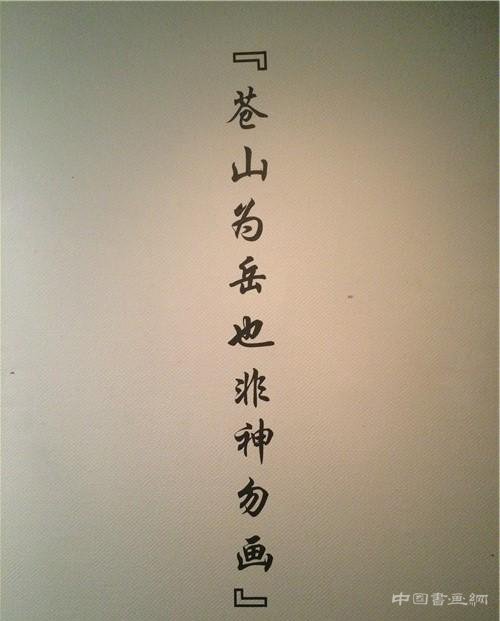 『苍山为岳也非神勿画』
中国书画网